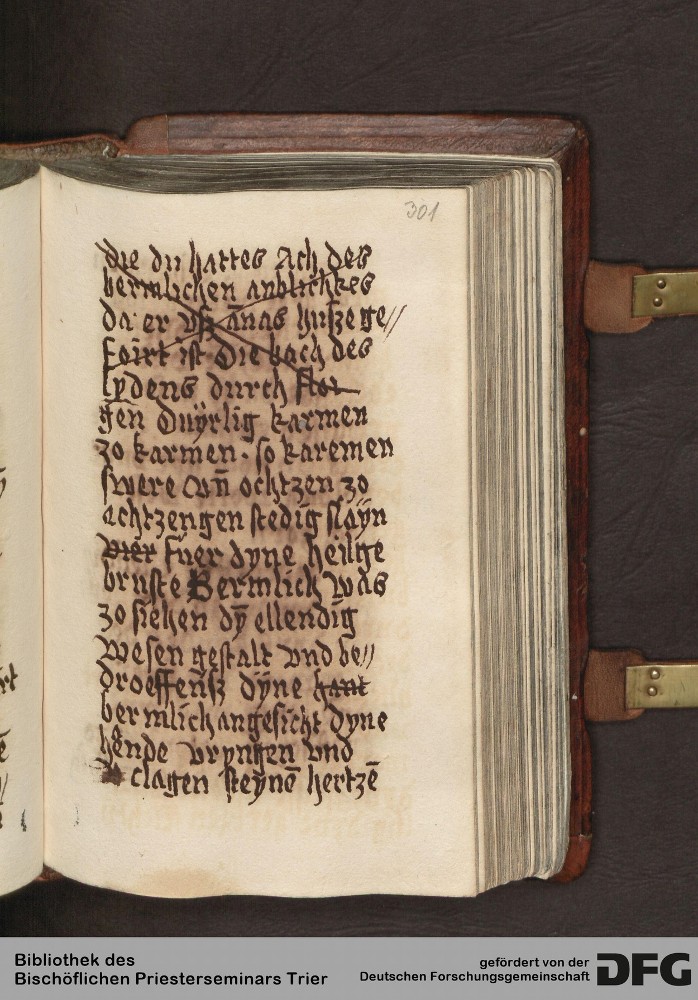 301
die du hattes Ach des
bermlichen anblichkes
da er vß anas hußege//
foirt ist Die hach des
lydens durch floi
gen Duÿrlig karmen
zo karmen · so karemen
swere vn̄ ochtzen zo
achtzengen stedig slaÿn
vier fuer dyne heilige
bruste Bermlich was
zo siehen dÿ ellendig
wesen gestalt vnd be//
droeffenß dÿne hant
bermlich angesicht dyne
hende vryngen vnd
clagen steynē hertzē
Bibliothek des
Bischöflichen Priesterseminars Trier
gefördert von der
Deutschen Forschungsgemeinschaft
DFG